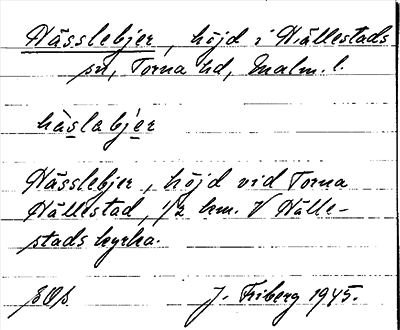 Hässlebjer, höjd i Hällestads
sn, Torna hd, Malm. l.
hàslabjer
Hässlebjer, höjd vid Torna
Hällestad, 1/2 km. V Hälle-
stads kyrka.
J. Friberg 1945.